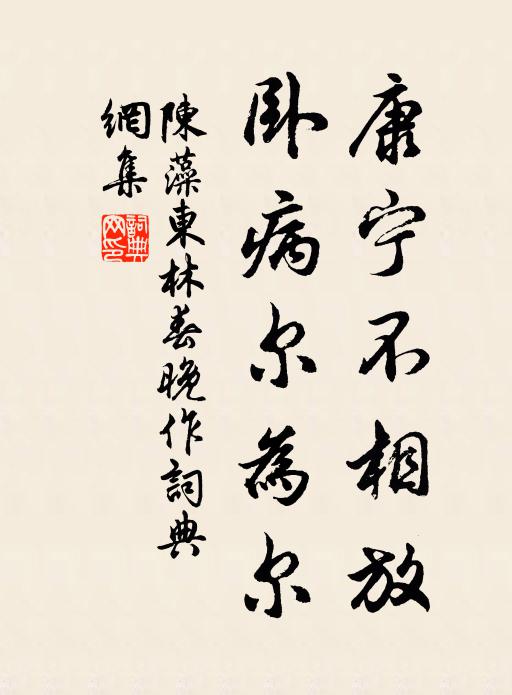 康宁不相放
卧病尔為尔
陳藻東林春晚作詞典
網集
詞典
网印